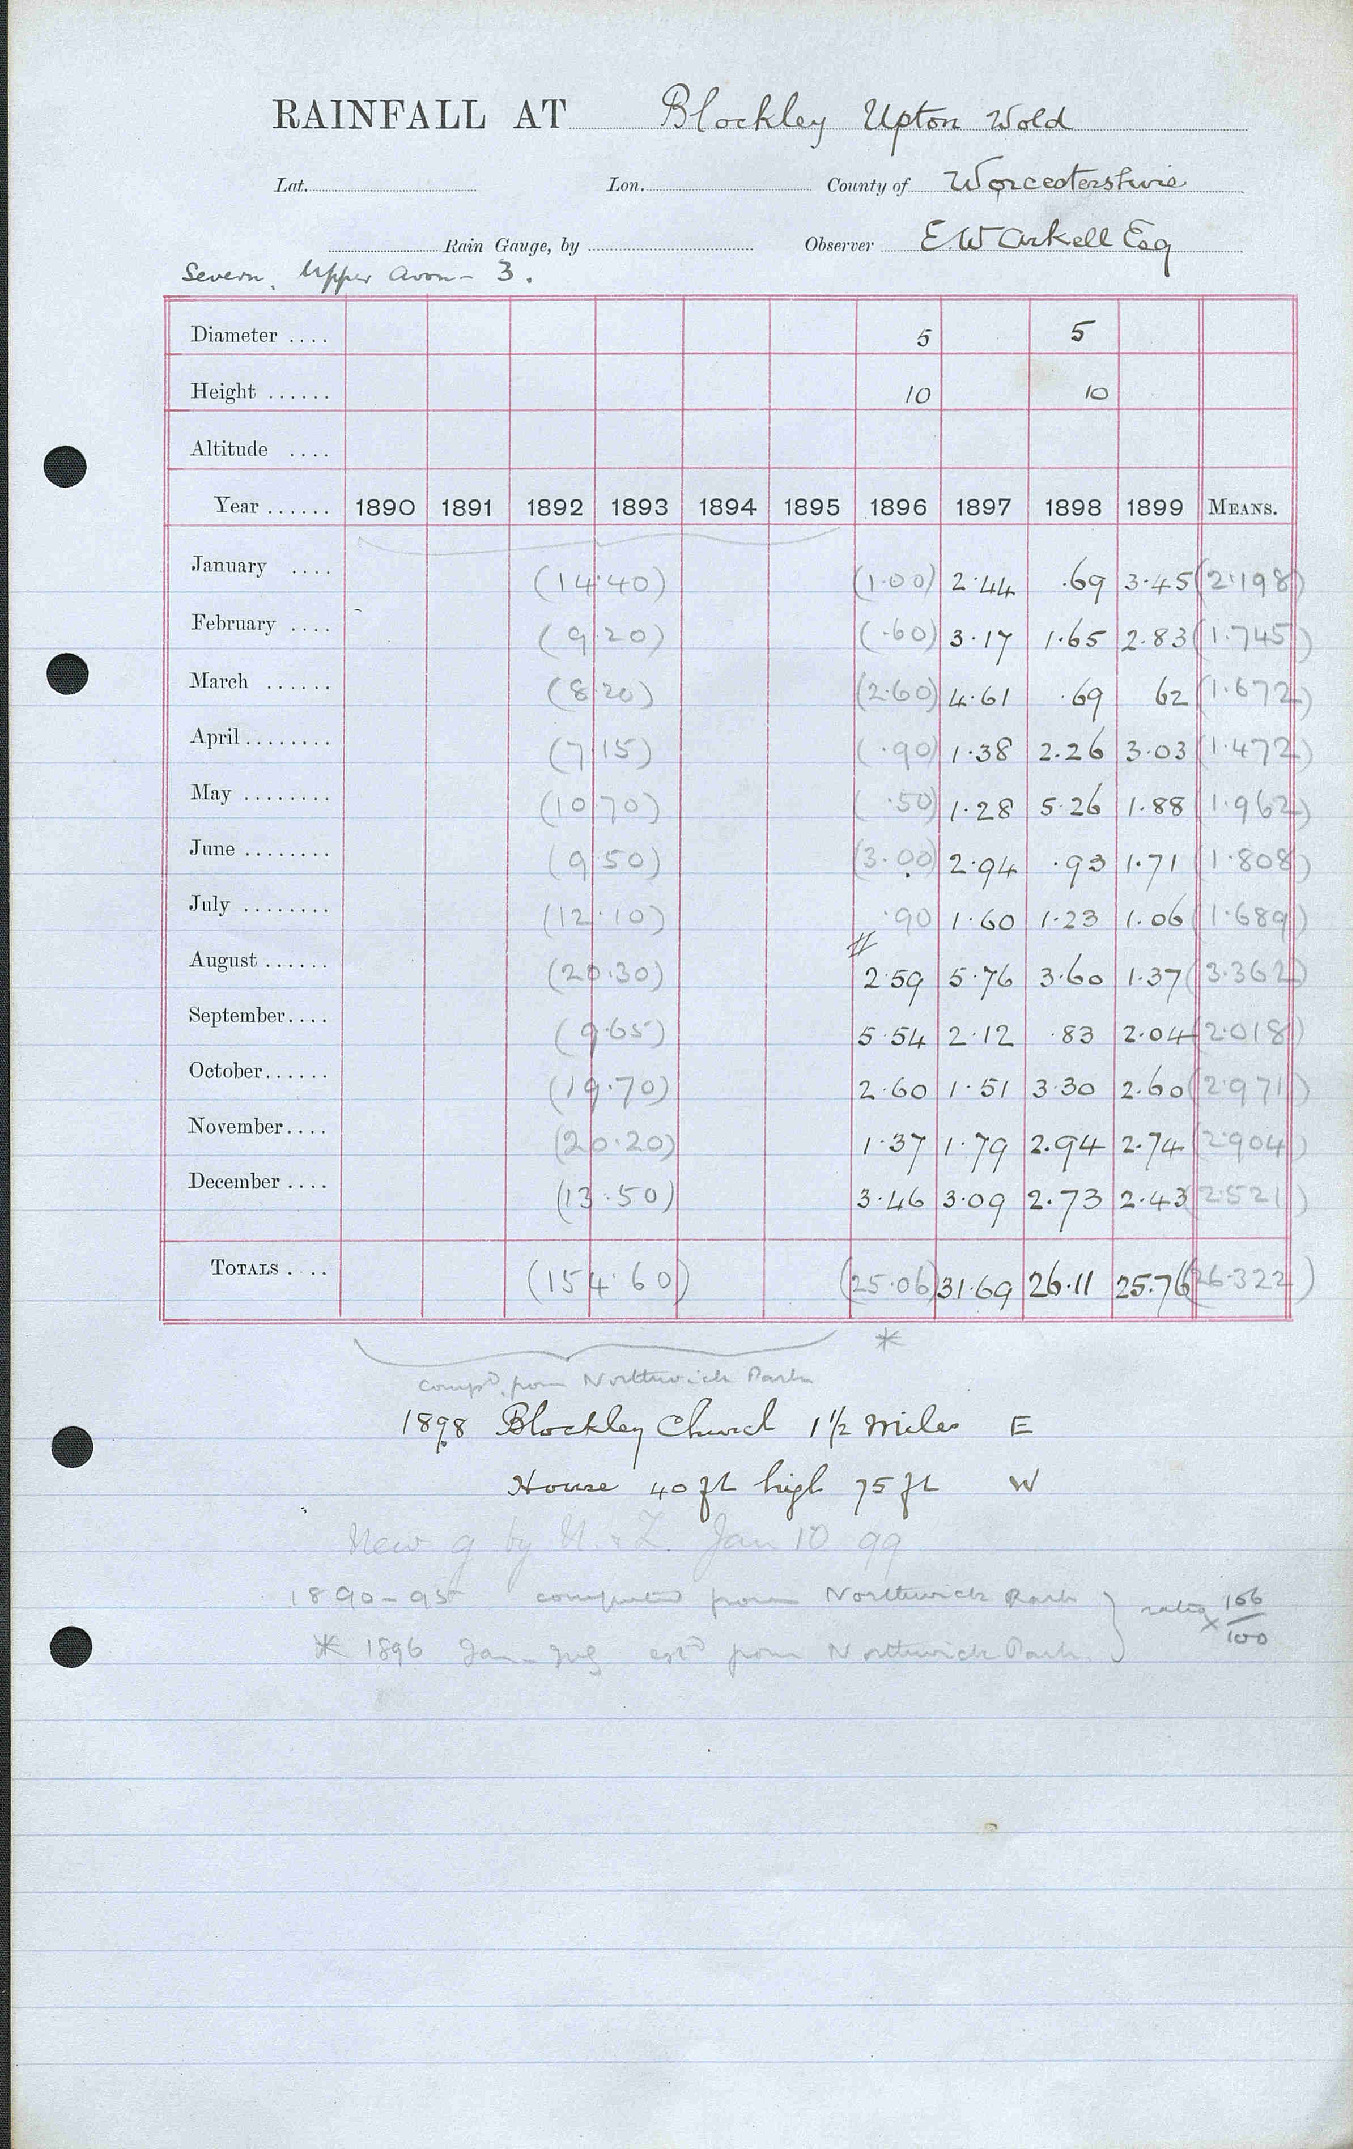 RAINFALL AT Blockley Upton Wold
Lat. Lon. County of Worcestershire
Rain Gauge, by Observer E W Arkell Esq
Severn, Upper Avon - 3.
Diameter .... 5 5
Height ...... 10 10
Altitude ....
Year ...... 1890 1891 1892 1893 1894 1895 1896 1897 1898 1899 MEANS.
January .... (14.40) (1.00) 2.44 .69 3.45 (2.198)
February .... (9.20) (.60) 3.17 1.65 2.83 (1.745)
March ...... (8.20) (2.60) 4.61 .69 62 (1.672)
April ........ (7.15) (.90) 1.38 2.26 3.03 (1.472)
May ........ (10.70) (.50) 1.28 5.26 1.88 (1.962)
June ........ (9.50) (3.00) 2.94 .93 1.71 (1.808)
July ........ (12.10) .90 1.60 1.23 1.06 (1.689)
August ...... (20.30) 2.59 5.76 3.60 1.37 (3.362)
September.... (9.65) 5.54 2.12 .83 2.04 (2.018)
October...... (19.70) 2.60 1.51 3.30 2.60 (2.971)
November.... (20.20) 1.37 1.79 2.94 2.74 (2.904)
December .... (13.50) 3.46 3.09 2.73 2.43 (2.521)
TOTALS .... (154.60) (25.06) 31.69 26.11 25.76 (26.322)
*
compd. from Northwick Park
1898 Blockley Church 1½ miles E
House 40 ft high 75 ft W
New g by N. & Z. Jan 10 99
1890-95 computed from Northwick Park } ratio × 106/100
* 1896 Jan - July estd from Northwick Park